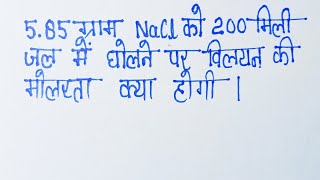 5.85 ग्राम NaCl को 200 मिली
जल में घोलने पर विलयन की
मोलरता क्या होगी ।